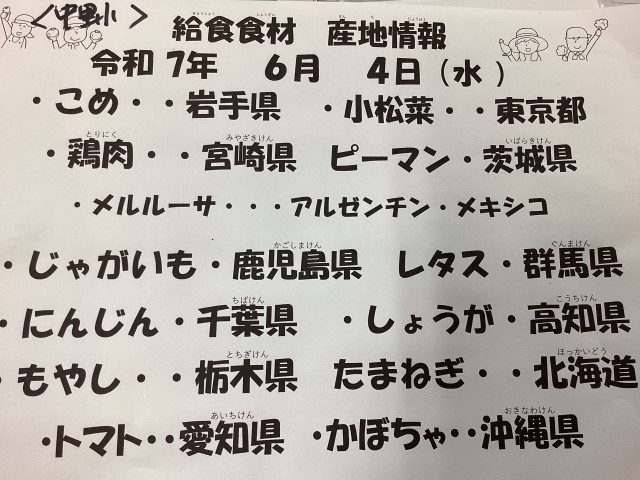 <中里小>
給食食材 産地情報
令和 7年 6月 4日(水)
・こめ・・岩手県 ・小松菜・・東京都
・鶏肉・・宮崎県 ピーマン・茨城県
・メルルーサ・・・アルゼンチン・メキシコ
・じゃがいも・鹿児島県 レタス・群馬県
・にんじん・千葉県 ・しょうが・高知県
・もやし・・栃木県 たまねぎ・・北海道
・トマト・・愛知県 ・かぼちゃ・・沖縄県